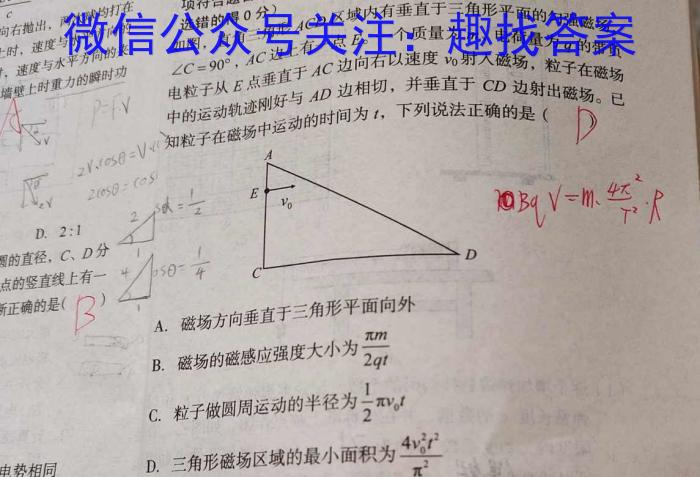 微信公众号关注：趣找答案
向右抛出，
上时，速度与
速度与水平方向的
墙壁上时重力的瞬时功
A
P=Fv
2
1
4
1
D. 2:1
圆的直径，C、D分
点的竖直线上有一
断正确的是( )
B
电势相同
选错的得0分)
区域内有垂直于三角形平面的
∠C=90°，AC边上有
电粒子从E点垂直于AC边向右以速度v₀射入磁场，粒子在磁场
中的运动轨迹刚好与AD边相切，并垂直于CD边射出磁场。已
知粒子在磁场中运动的时间为t，下列说法正确的是( )
D
A
E
v₀
C
D
BqV=m·4π²/T²·R
A. 磁场方向垂直于三角形平面向外
B. 磁场的磁感应强度大小为πm/2qt
C. 粒子做圆周运动的半径为1/2πv₀t
D. 三角形磁场区域的最小面积为4v₀²t²/π²